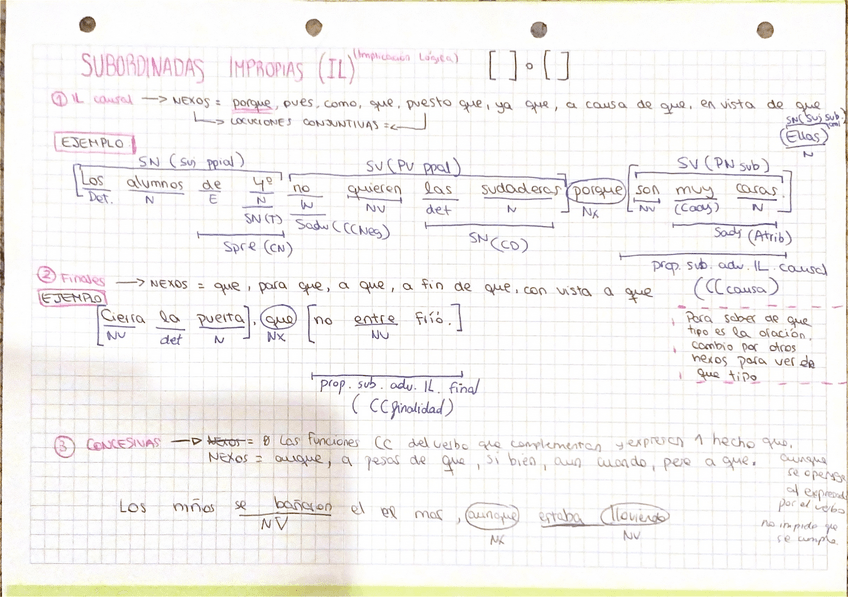 SUBORDINADAS IMPROPIAS (IL) (Implicación Lógica) [ ] o [ ]
① IL causal → NEXOS = porque, pues, como, que, puesto que, ya que, a causa de que, en vista de que
LOCUCIONES CONJUNTIVAS =
SN (Suj sub.)
(Ellas)
N
EJEMPLO
SN (Suj ppial) SV (PV ppal) SV (PN sub)
[Los alumnos de 4º no quieren las sudaderas] porque [son muy caras.]
Det. N E N N NV det N NX NV (Cady) N
SN(T) Sadv (CCNeg) SN (CD) Sady (Atrib)
Spre (CN)
prop. sub. adv. IL. causal
(CC causa)
② Finales → NEXOS = que, para que, a que, a fin de que, con vista a que
EJEMPLO
[Cierra la puerta], que [no entre frío.]
NV det N NX NV
Para saber de que
tipo es la oración.
cambio por otros
nexos para ver de
que tipo
prop. sub. adv. IL. final
(CC finalidad)
③ CONCESIVAS → NEXOS = Las funciones CC del verbo que complementan y expresan 1 hecho que.
NEXOS = aunque, a pesas de que, si bien, aun cuando, pese a que.
aunque
se oponga
al expresado
por el verbo
no impide que
se cumpla
Los niños se bañaron el mar, aunque estaba lloviendo
NV NX NV